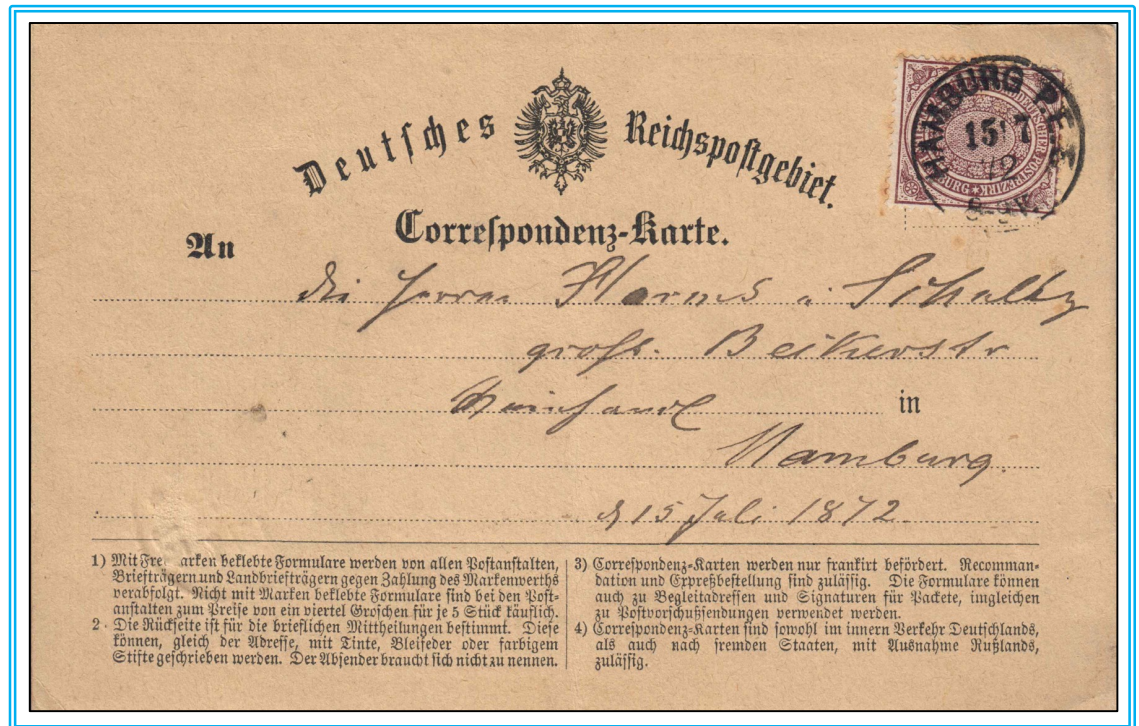 Deutsches Reichspostgebiet.
HAMBURG P.E.
15 7
72
POSTBEZIRK
Correspondenz-Karte.
An
Harms
groß.
in
Hamburg.
15 Juli 1872.
1) Mit Fre arken beklebte Formulare werden von allen Postanstalten,
Briefträgern und Landbriefträgern gegen Zahlung des Markenwerths
verabfolgt. Nicht mit Marken beklebte Formulare sind bei den Post-
anstalten zum Preise von ein viertel Groschen für je 5 Stück käuflich.
2 Die Rückseite ist für die brieflichen Mittheilungen bestimmt. Diese
können, gleich der Adresse, mit Tinte, Bleifeder oder farbigem
Stifte geschrieben werden. Der Absender braucht sich nicht zu nennen.
3) Correspondenz-Karten werden nur frankirt befördert. Recomman-
dation und Expreßbestellung sind zulässig. Die Formulare können
auch zu Begleitadressen und Signaturen für Packete, imgleichen
zu Postvorschußsendungen verwendet werden.
4) Correspondenz-Karten sind sowohl im innern Verkehr Deutschlands,
als auch nach fremden Staaten, mit Ausnahme Rußlands,
zulässig.